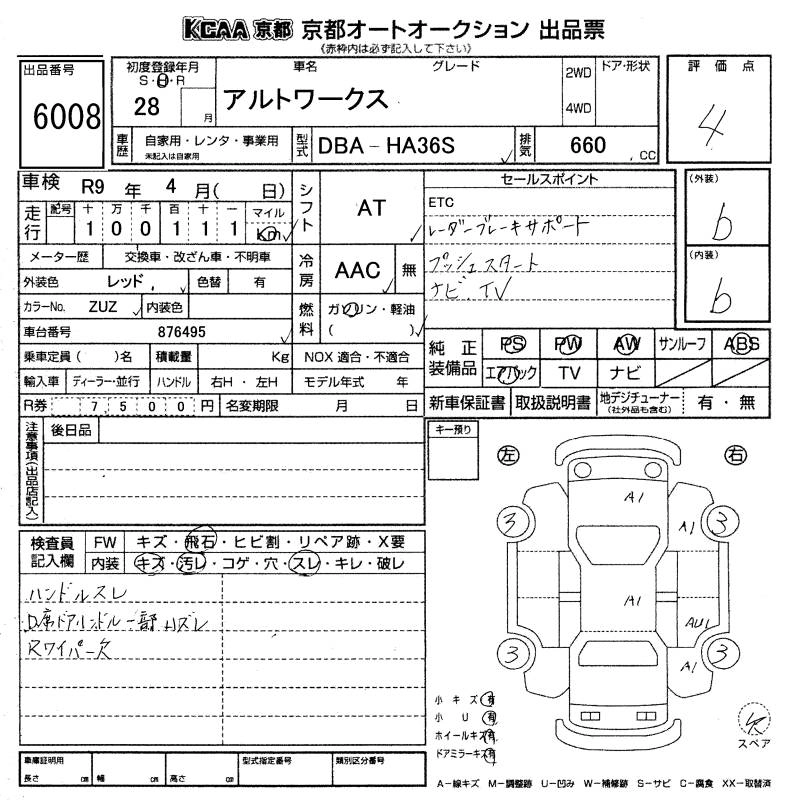 KCAA 京都 京都オートオークション 出品票
《赤枠内は必ず記入して下さい》
出品番号
6008
初度登録年月
S・H・R
28 月
車名 グレード
アルトワークス
2WD
4WD
ドア・形状
評価点
4
車歴 自家用・レンタ・事業用
未記入は自家用
型式 DBA-HA36S
排気 660 .CC
車検 R9 年 4 月( 日)
走行 記号 十 万 千 百 十 一 マイル
1 0 0 1 1 1 Km
メーター歴 交換車・改ざん車・不明車
外装色 レッド 色替 有
カラーNo. ZUZ 内装色
車台番号 876495
乗車定員( )名 積載量 Kg NOX 適合・不適合
輸入車 ディーラー・並行 ハンドル 右H・左H モデル年式 年
R券 7,500 円 名変期限 月 日
シフト AT
冷房 AAC 無
燃料 ガソリン・軽油
( )
セールスポイント
ETC
レーダーブレーキサポート
プッシュスタート
ナビ.TV
(外装)
b
(内装)
b
純正装備品 PS PW AW サンルーフ ABS
エアバック TV ナビ
新車保証書 取扱説明書 地デジチューナー(社外品も含む) 有・無
注意事項(出品店記入) 後日品
キー預り
左 右
検査員記入欄 FW キズ・飛石・ヒビ割・リペア跡・X要
内装 キズ・汚レ・コゲ・穴・スレ・キレ・破レ
ハンドルスレ
D席ドアハンドル一部ハズレ
Rワイパー欠
3 3
A1
A1
A1
AU1
A1
3 3
小キズ 有
小U 有
ホイールキズ 有
ドアミラーキズ 有
スペア
車庫証明用 型式指定番号 類別区分番号
長さ cm 幅 cm 高さ cm
A-線キズ M-調整跡 U-凹み W-補修跡 S-サビ C-腐食 XX-取替済